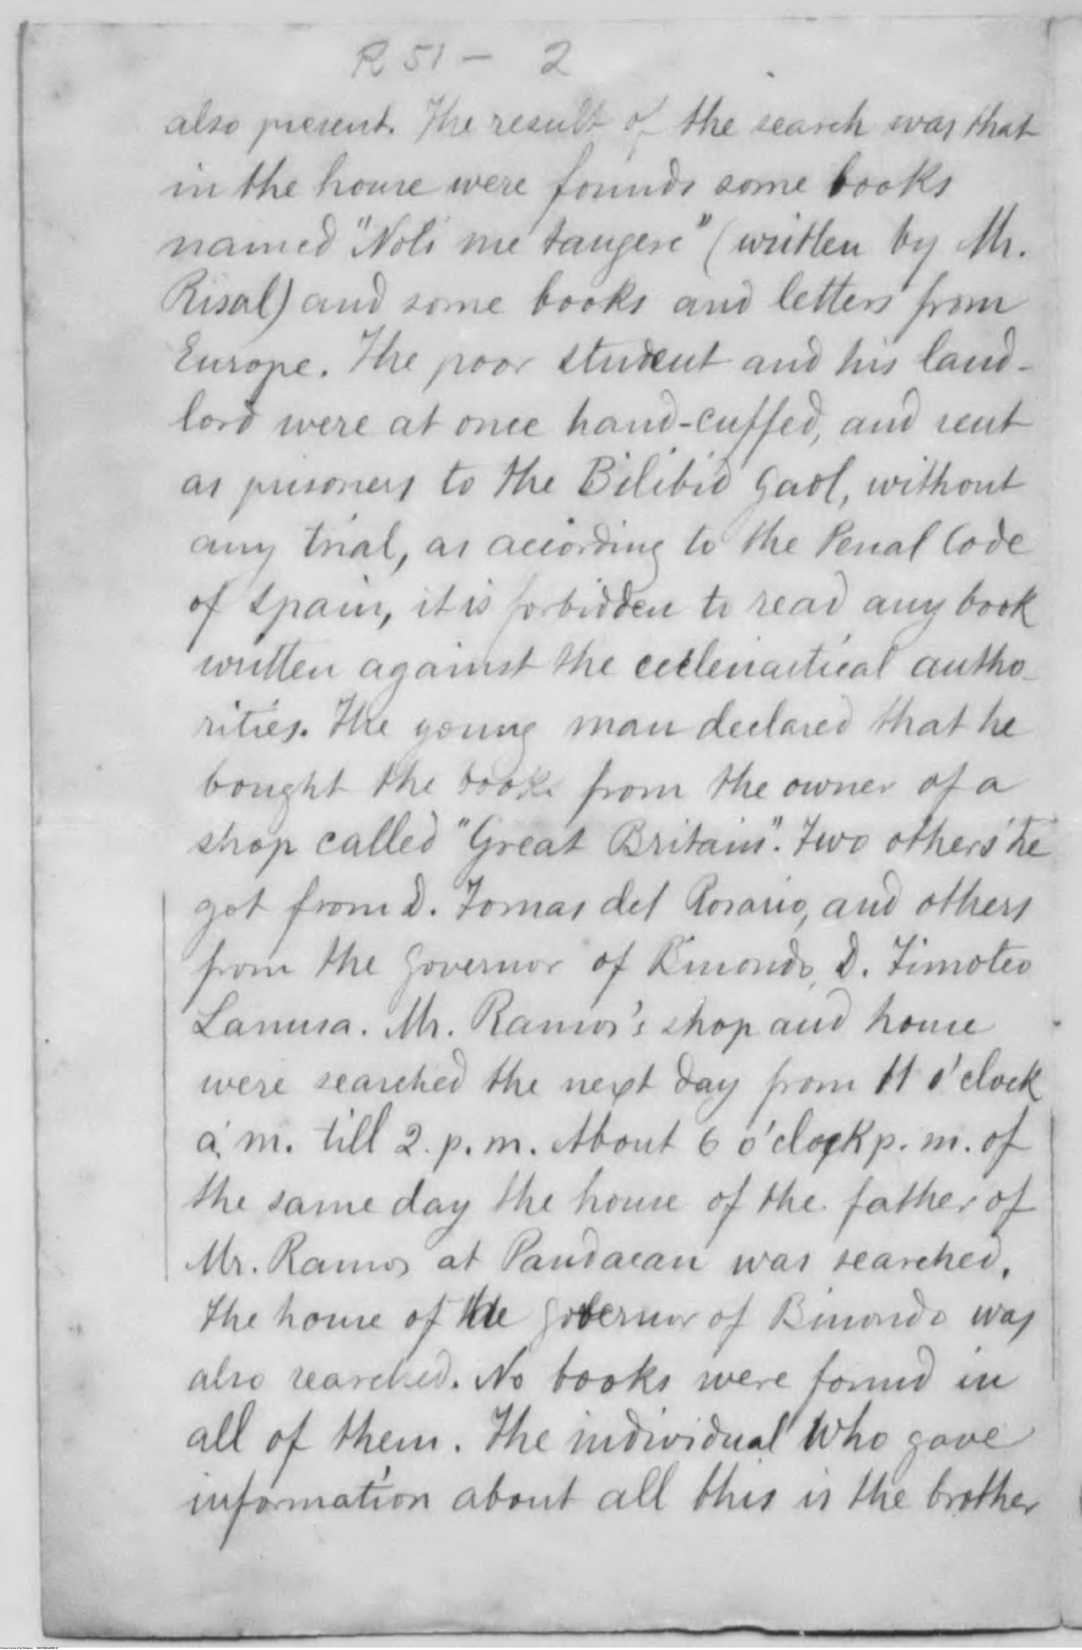 R 51 - 2
also present. The result of the search was that
in the house were founds some books
named "Noli me tangere" (written by Mr.
Risal) and some books and letters from
Europe. The poor student and his land-
lord were at once hand-cuffed, and sent
as prisoners to the Bilibid Gaol, without
any trial, as according to the Penal Code
of Spain, it is forbidden to read any book
written against the ecclesiastical autho-
rities. The young man declared that he
bought the books from the owner of a
shop called "Great Britain". Two others he
got from D. Tomas del Rosario, and others
from the Governor of Binondo, D. Timoteo
Lanusa. Mr. Ramos's shop and house
were searched the next day from 11 o'clock
a. m. till 2. p. m. About 6 o'clock p. m. of
the same day the house of the father of
Mr. Ramos at Pandacan was searched.
The house of the Gobernor of Binondo was
also searched. No books were found in
all of them. The individual who gave
information about all this is the brother